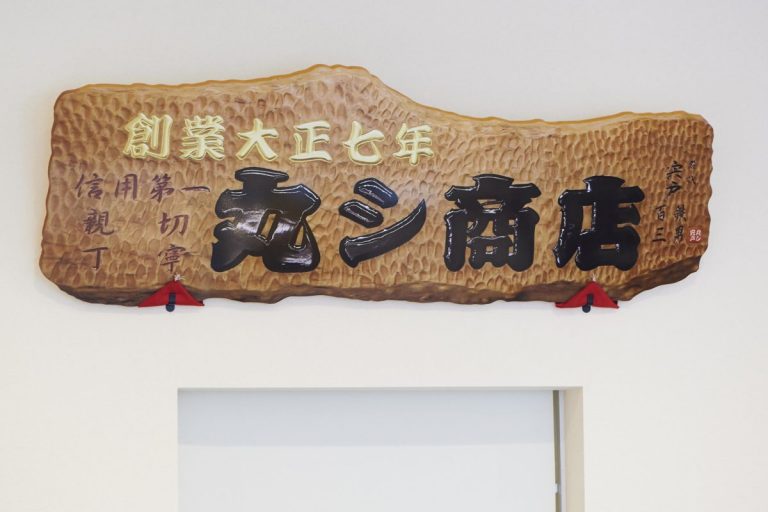 創業大正七年
信用第一
親切
丁寧
丸シ商店
百三